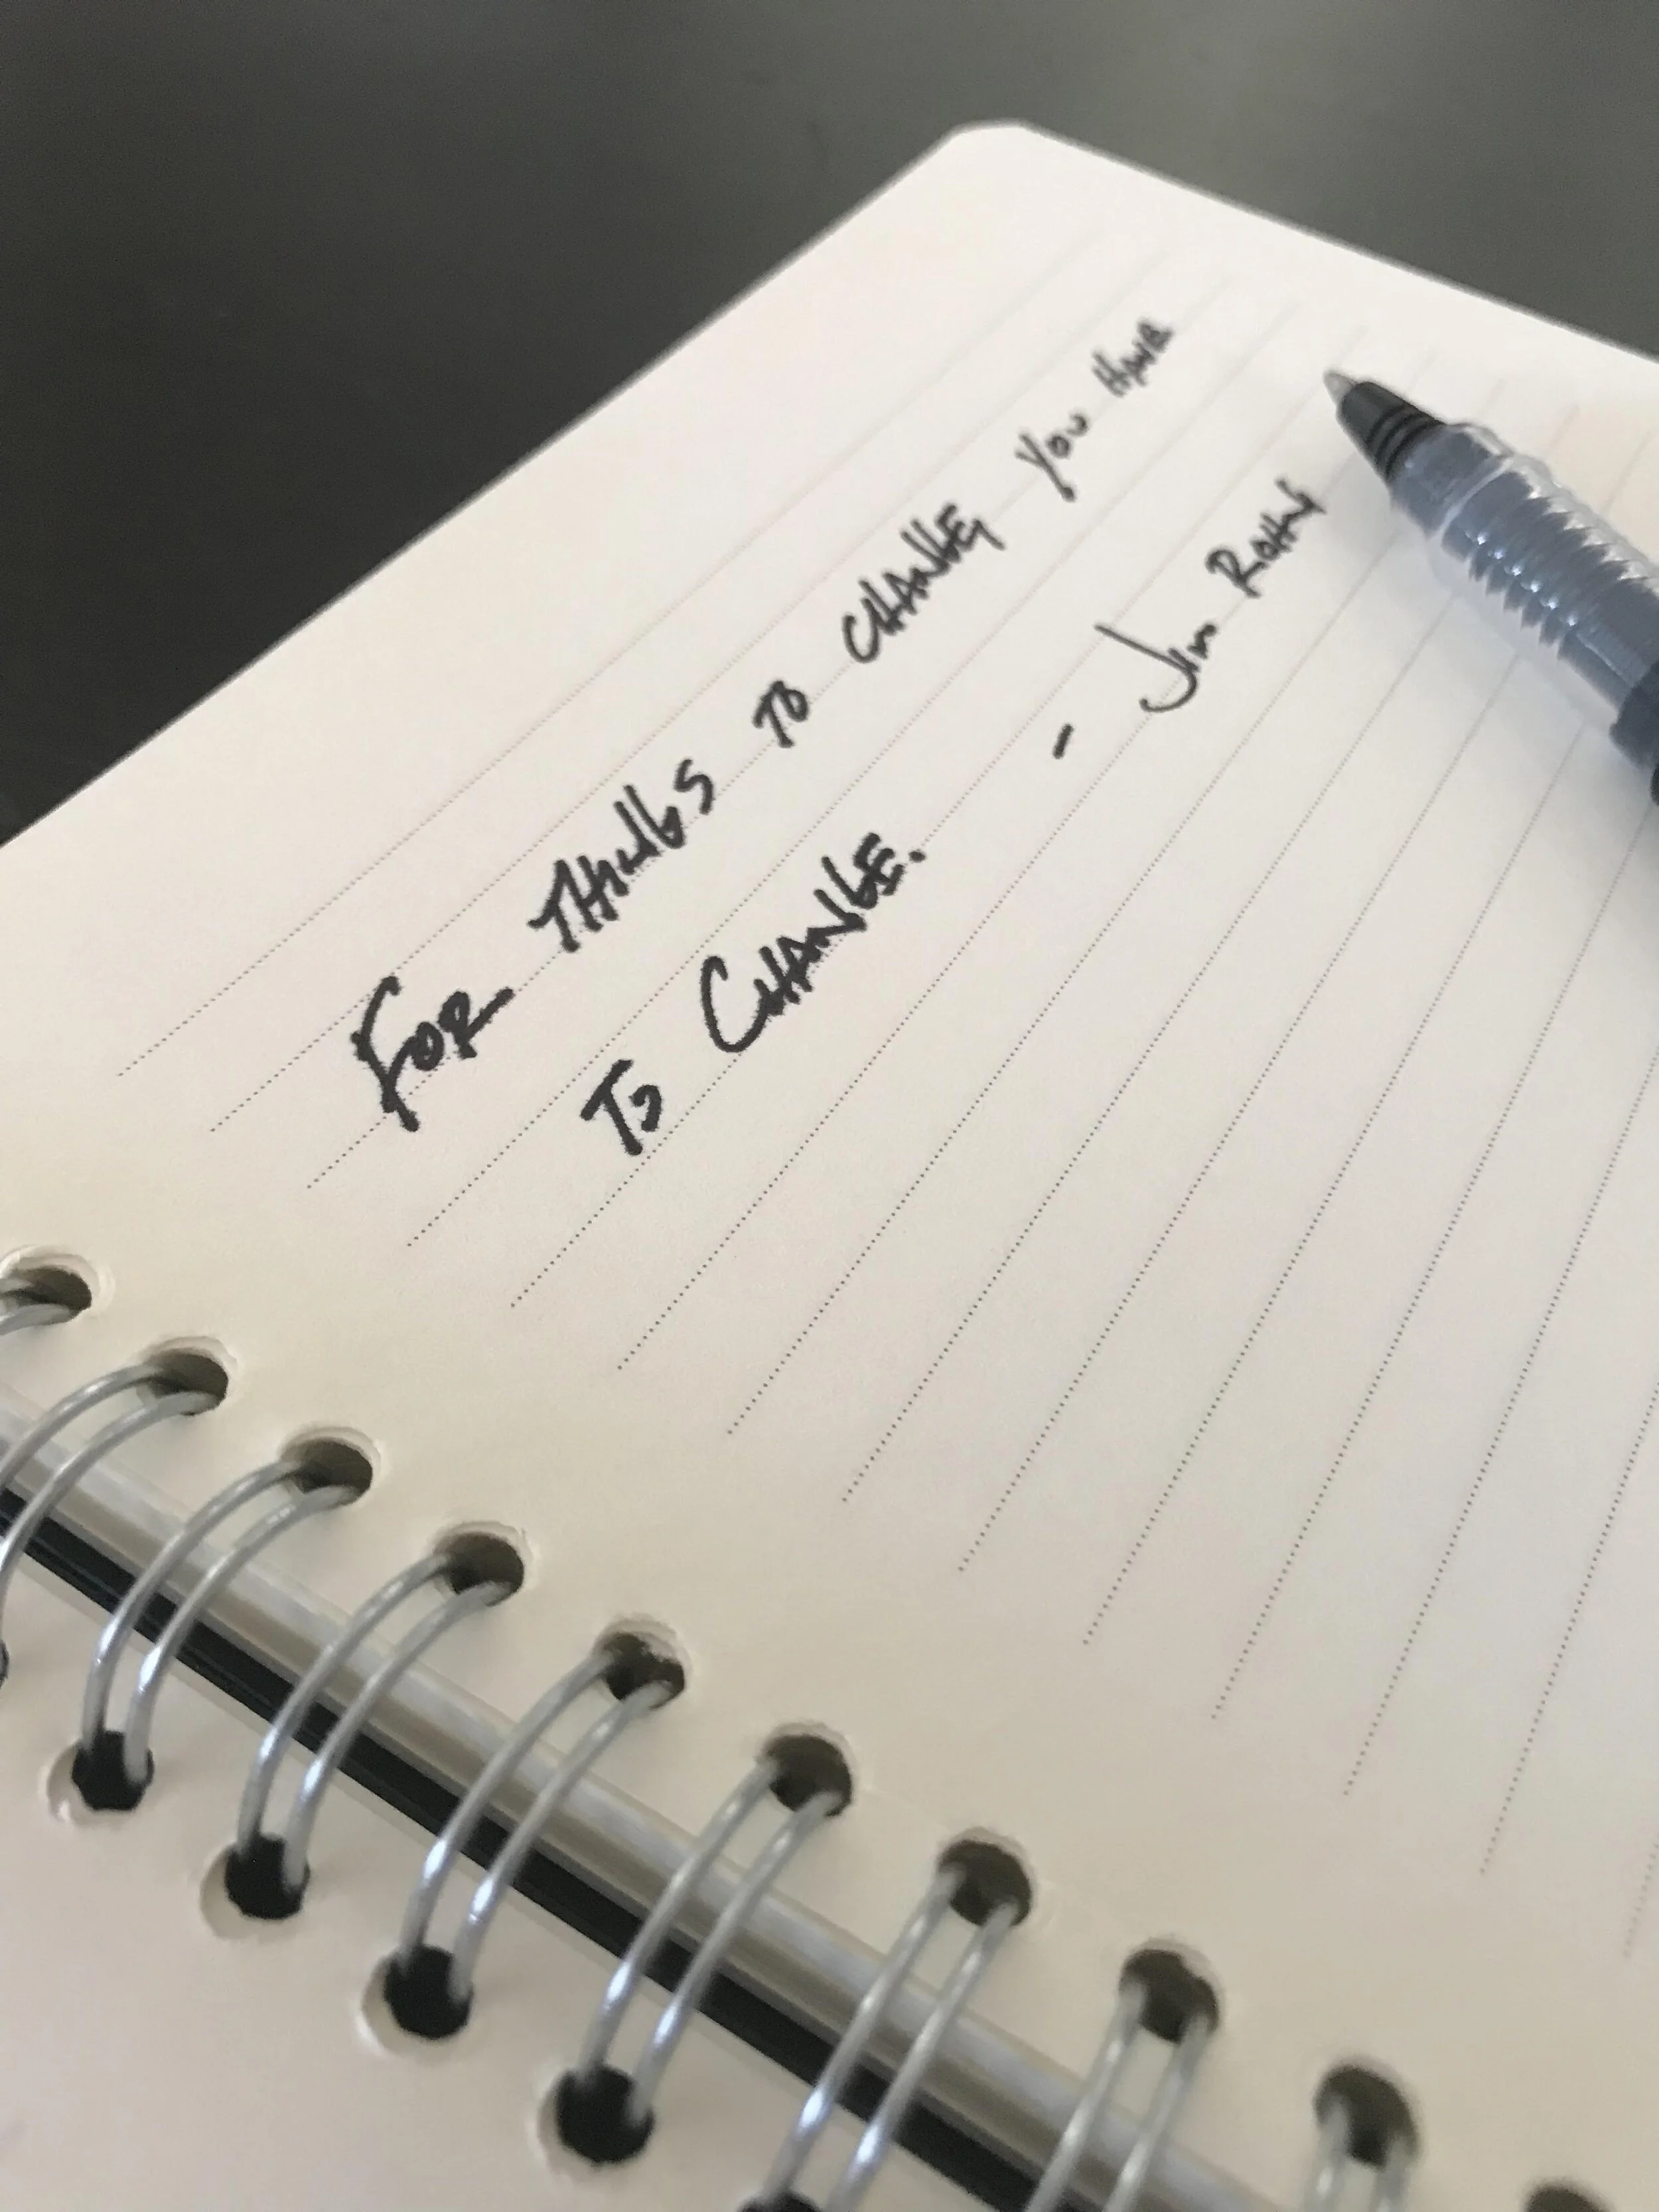 FOR THINGS TO CHANGE, YOU HAVE
TO CHANGE.
- JIM ROHN